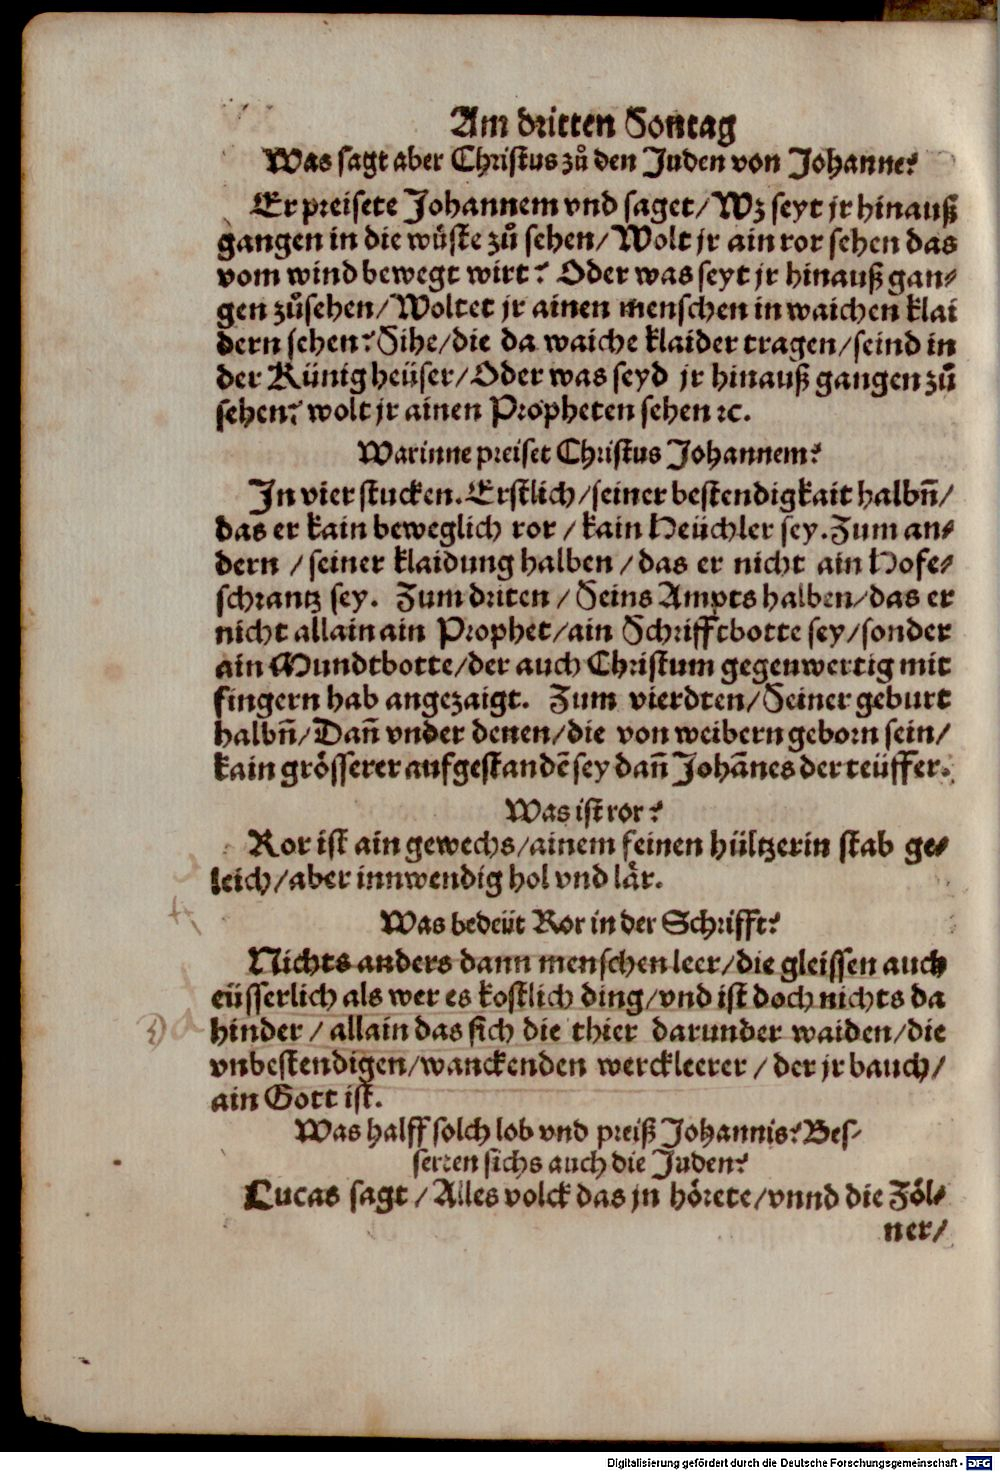 Am dritten Sontag
Was sagt aber Christus zů den Juden von Johanne?
Er preisete Johannem vnd saget/ Wz seyt jr hinauß
gangen in die wůste zů sehen/ Wolt jr ain ror sehen das
vom wind bewegt wirt? Oder was seyt jr hinauß gan⸗
gen zůsehen/ Woltet jr ainen menschen in waichen klai
dern sehen? Sihe/ die da waiche klaider tragen/ seind in
der Künig heüser/ Oder was seyd jr hinauß gangen zů
sehen? wolt jr ainen Propheten sehen ꝛc.
Warinne preiset Christus Johannem?
In vier stucken. Erstlich/ seiner bestendigkait halbn̄/
das er kain beweglich ror / kain Heüchler sey. Zum an⸗
dern / seiner klaidung halben / das er nicht ain Hofe⸗
schrantz sey. Zum driten / Seins Ampts halben/ das er
nicht allain ain Prophet/ ain Schrifftbotte sey/ sonder
ain Mundtbotte/ der auch Christum gegenwertig mit
fingern hab angezaigt. Zum vierdten/ Seiner geburt
halbn̄/ Dan̄ vnder denen/ die von weibern geborn sein/
kain grösserer aufgestandē sey dan̄ Johānes der teüffer.
Was ist ror?
Ror ist ain gewechs/ ainem feinen hültzerin stab ge⸗
leich/ aber innwendig hol vnd lår.
Was bedeüt Ror in der Schrifft?
Nichts anders dann menschen leer/ die gleissen auch
eüsserlich als wer es kostlich ding/ vnd ist doch nichts da
hinder / allain das sich die thier darunder waiden/ die
vnbestendigen/ wanckenden werckleerer / der jr bauch/
ain Gott ist.
Was halff solch lob vnd preiß Johannis? Bes⸗
serten sichs auch die Juden?
Lucas sagt / Alles volck das jn hörete/ vnnd die Zöl⸗
ner/
Digitalisierung gefördert durch die Deutsche Forschungsgemeinschaft - DFG